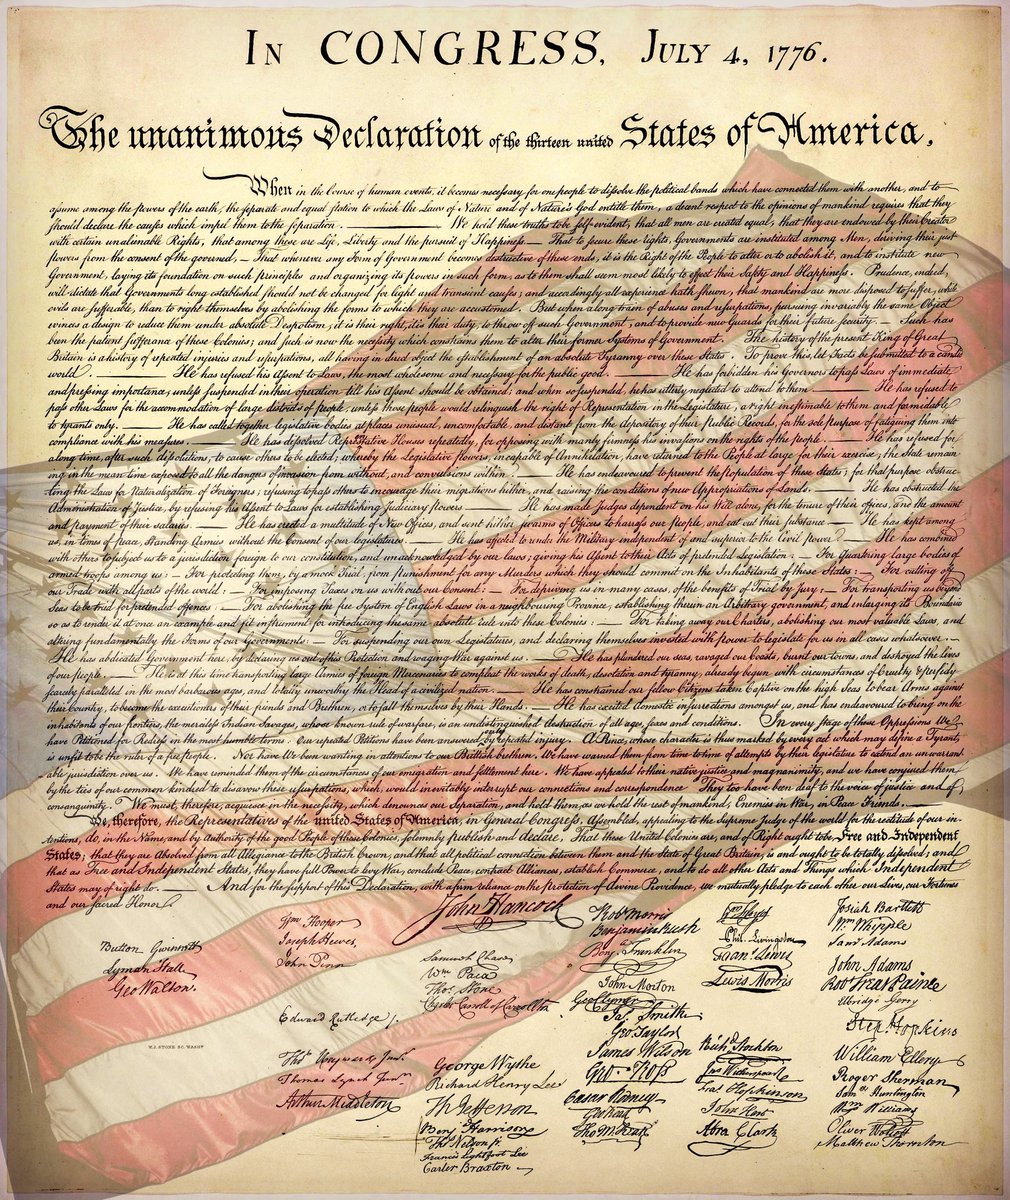 IN CONGRESS, JULY 4, 1776.
The unanimous Declaration of the thirteen united States of America,
When in the Course of human events, it becomes necessary for one people to dissolve the political bands which have connected them with another, and to
assume among the powers of the earth, the separate and equal station to which the Laws of Nature and of Nature's God entitle them, a decent respect to the opinions of mankind requires that they
should declare the causes which impel them to the separation. — We hold these truths to be self-evident, that all men are created equal, that they are endowed by their Creator
with certain unalienable Rights, that among these are Life, Liberty and the pursuit of Happiness. — That to secure these rights, Governments are instituted among Men, deriving their just
powers from the consent of the governed, — That whenever any Form of Government becomes destructive of these ends, it is the Right of the People to alter or to abolish it, and to institute new
Government, laying its foundation on such principles and organizing its powers in such form, as to them shall seem most likely to effect their Safety and Happiness. Prudence, indeed,
will dictate that Governments long established should not be changed for light and transient causes; and accordingly all experience hath shewn, that mankind are more disposed to suffer, while
evils are sufferable, than to right themselves by abolishing the forms to which they are accustomed. But when a long train of abuses and usurpations, pursuing invariably the same Object
evinces a design to reduce them under absolute Despotism, it is their right, it is their duty, to throw off such Government, and to provide new Guards for their future security. — Such has
been the patient sufferance of these Colonies; and such is now the necessity which constrains them to alter their former Systems of Government. The history of the present King of Great
Britain is a history of repeated injuries and usurpations, all having in direct object the establishment of an absolute Tyranny over these States. To prove this, let Facts be submitted to a candid
world. — He has refused his Assent to Laws, the most wholesome and necessary for the public good. — He has forbidden his Governors to pass Laws of immediate
and pressing importance, unless suspended in their operation till his Assent should be obtained; and when so suspended, he has utterly neglected to attend to them. — He has refused to
pass other Laws for the accommodation of large districts of people, unless those people would relinquish the right of Representation in the Legislature, a right inestimable to them and formidable
to tyrants only. — He has called together legislative bodies at places unusual, uncomfortable, and distant from the depository of their Public Records, for the sole purpose of fatiguing them into
compliance with his measures. — He has dissolved Representative Houses repeatedly, for opposing with manly firmness his invasions on the rights of the people. — He has refused for
a long time, after such dissolutions, to cause others to be elected; whereby the Legislative powers, incapable of Annihilation, have returned to the People at large for their exercise; the State remain
ing in the mean time exposed to all the dangers of invasion from without, and convulsions within. — He has endeavoured to prevent the population of these States; for that purpose obstruc-
ting the Laws for Naturalization of Foreigners; refusing to pass others to encourage their migrations hither, and raising the conditions of new Appropriations of Lands. — He has obstructed the
Administration of Justice, by refusing his Assent to Laws for establishing Judiciary powers — He has made Judges dependent on his Will alone, for the tenure of their offices, and the amount
and payment of their salaries. — He has erected a multitude of New Offices, and sent hither swarms of Officers to harrass our people, and eat out their substance — He has kept among
us, in times of peace, Standing Armies without the Consent of our legislatures. — He has affected to render the Military independent of and superior to the Civil power — He has combined
with others to subject us to a jurisdiction foreign to our constitution, and unacknowledged by our laws; giving his Assent to their Acts of pretended Legislation: — For Quartering large bodies of
armed troops among us: — For protecting them, by a mock Trial, from punishment for any Murders which they should commit on the Inhabitants of these States: — For cutting off
our Trade with all parts of the world: — For imposing Taxes on us without our Consent: — For depriving us in many cases, of the benefits of Trial by jury: — For transporting us beyond
Seas to be tried for pretended offences — For abolishing the free System of English Laws in a neighbouring Province, establishing therein an Arbitrary government, and enlarging its Boundaries
so as to render it at once an example and fit instrument for introducing the same absolute rule into these Colonies: — For taking away our Charters, abolishing our most valuable Laws, and
altering fundamentally the Forms of our Governments: — For suspending our own Legislatures, and declaring themselves invested with power to legislate for us in all cases whatsoever. —
He has abdicated Government here, by declaring us out of his Protection and waging War against us. — He has plundered our seas, ravaged our Coasts, burnt our towns, and destroyed the lives
of our people. — He is at this time transporting large Armies of foreign Mercenaries to compleat the works of death, desolation and tyranny, already begun with circumstances of Cruelty & perfidy
scarcely paralleled in the most barbarous ages, and totally unworthy the Head of a civilized nation. — He has constrained our fellow Citizens taken Captive on the high Seas to bear Arms against
their Country, to become the executioners of their friends and Brethren, or to fall themselves by their Hands. — He has excited domestic insurrections amongst us, and has endeavoured to bring on the
inhabitants of our frontiers, the merciless Indian Savages, whose known rule of warfare, is an undistinguished destruction of all ages, sexes and conditions. In every stage of these Oppressions We
have Petitioned for Redress in the most humble terms: Our repeated Petitions have been answered only by repeated injury. A Prince, whose character is thus marked by every act which may define a Tyrant,
is unfit to be the ruler of a free people. Nor have We been wanting in attentions to our Brittish brethren. We have warned them from time to time of attempts by their legislature to extend an unwarrant
able jurisdiction over us. We have reminded them of the circumstances of our emigration and settlement here. We have appealed to their native justice and magnanimity, and we have conjured them
by the ties of our common kindred to disavow these usurpations, which, would inevitably interrupt our connections and correspondence They too have been deaf to the voice of justice and of
consanguinity. We must, therefore, acquiesce in the necessity, which denounces our Separation, and hold them, as we hold the rest of mankind, Enemies in War, in Peace Friends. —
We, therefore, the Representatives of the united States of America, in General Congress, Assembled, appealing to the Supreme Judge of the world for the rectitude of our in-
tentions, do, in the Name, and by Authority of the good People of these Colonies, solemnly publish and declare, That these United Colonies are, and of Right ought to be Free and Independent
States; that they are Absolved from all Allegiance to the British Crown, and that all political connection between them and the State of Great Britain, is and ought to be totally dissolved; and
that as Free and Independent States, they have full Power to levy War, conclude Peace, contract Alliances, establish Commerce, and to do all other Acts and Things which Independent
States may of right do. — And for the support of this Declaration, with a firm reliance on the protection of divine Providence, we mutually pledge to each other our Lives, our Fortunes
and our sacred Honor.
Button Gwinnett
Lyman Hall
Geo Walton.
W.J. STONE SC. WASHN
Wm Hooper
Joseph Hewes,
John Penn
Edward Rutledge /.
Thos Heyward Junr.
Thomas Lynch Junr.
Arthur Middleton
John Hancock
Samuel Chase
Wm Paca
Thos Stone
Charles Carroll of Carrollton
George Wythe
Richard Henry Lee
Th Jefferson
Benj Harrison
Thos Nelson jr.
Francis Lightfoot Lee
Carter Braxton
Robt Morris
Benjamin Rush
Benja Franklin
John Morton
Geo Clymer
Jas Smith
Geo. Taylor
James Wilson
Geo. Ross
Caesar Rodney
Geo Read
Tho M:Kean
Wm Floyd
Phil. Livingston
Frans Lewis
Lewis Morris
Richd Stockton
Jno Witherspoon
Fras Hopkinson
John Hart
Abra Clark
Josiah Bartlett
Wm Whipple
Saml Adams
John Adams
Robt Treat Paine
Elbridge Gerry
Step Hopkins
William Ellery
Roger Sherman
Saml Huntington
Wm Williams
Oliver Wolcott
Matthew Thornton